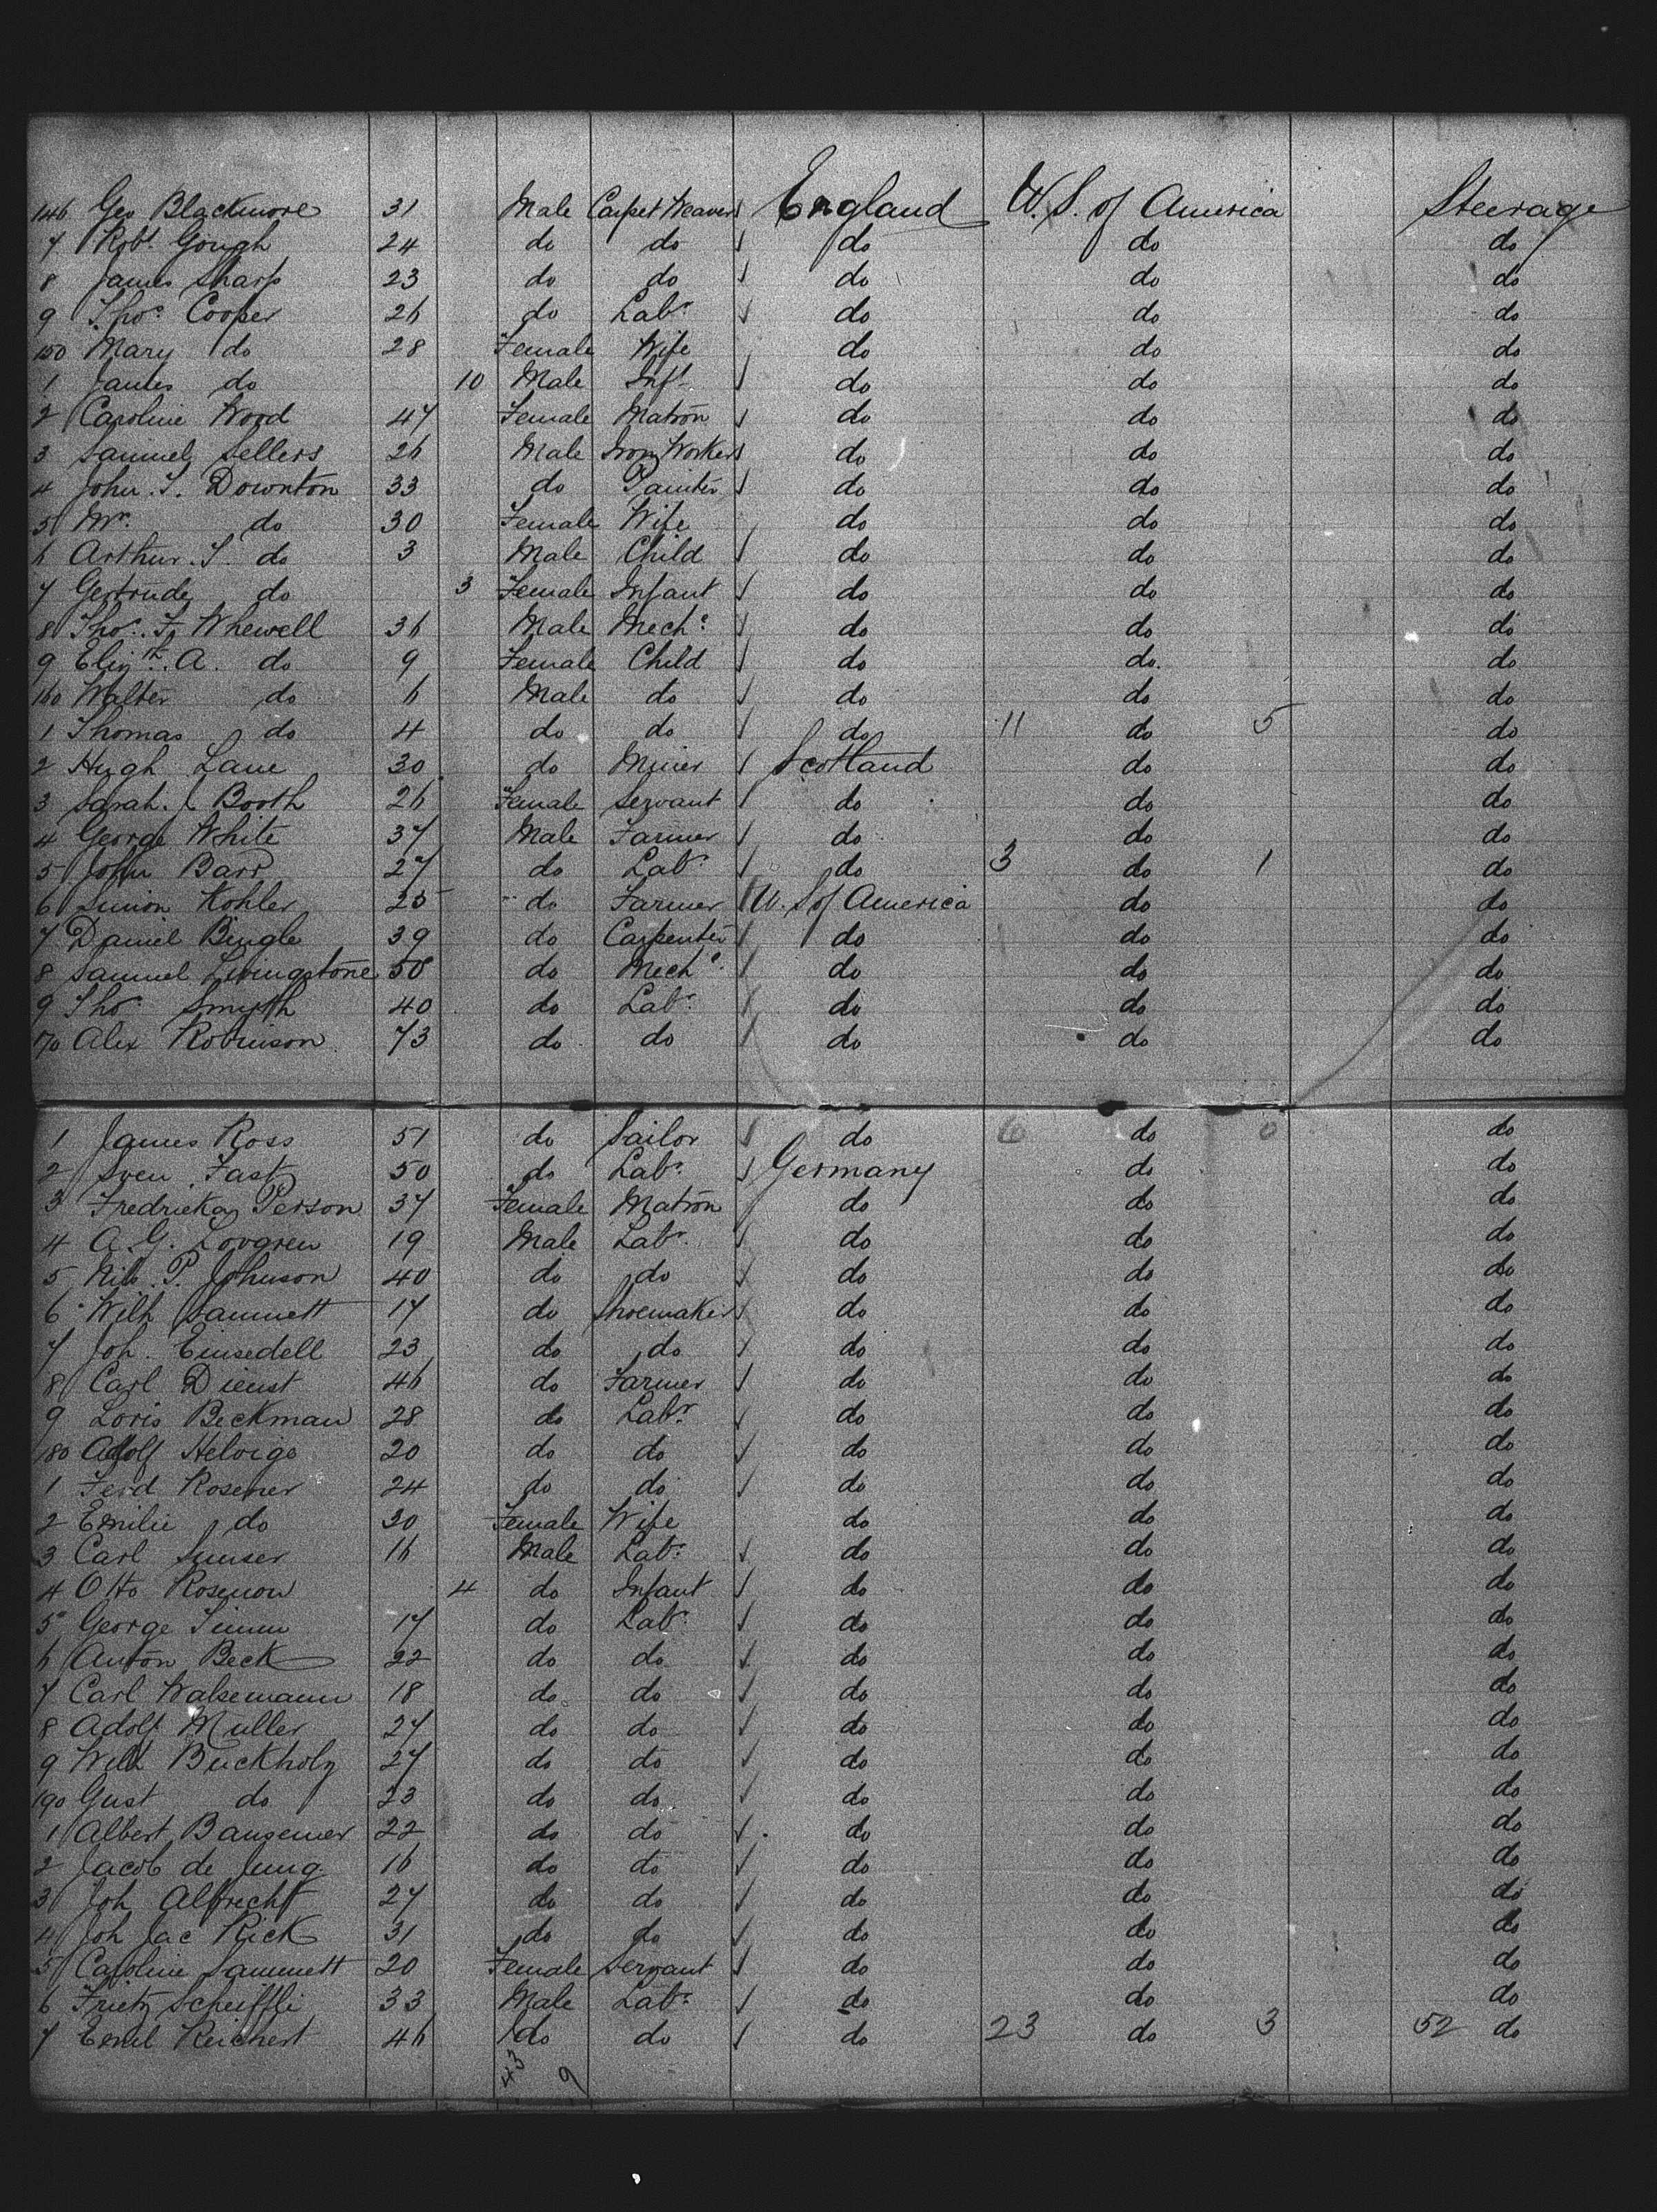 146 Geo Blackmore 31 Male Carpet Weaver England U. S. of America Steerage
7 Robt. Gough 24 do do do do do
8 James Sharp 23 do do do do do
9 Thos. Cooper 26 do Labr. do do do
150 Mary do 28 Female Wife do do do
1 James do 10 Male Inft. do do do
2 Caroline Wood 47 Female Matron do do do
3 Samuel Sellers 26 Male Iron Worker do do do
4 John. T. Downton 33 do Painter do do do
5 Mrs. do 30 Female Wife do do do
6 Arthur. T. do 3 Male Child do do do
7 Gertrude do 3 Female Infant do do do
8 Thos. F. Whewell 36 Male Mechc. do do do
9 Elizth. A. do 9 Female Child do do. do
160 Walter do 6 Male do do do do
1 Thomas do 4 do do do 11 do 5 do
2 Hugh Lane 30 do Miner Scotland do do
3 Sarah. J Booth 26 Female Servant do do do
4 George White 37 Male Farmer do do do
5 John Barr 27 do Labr. do 3 do 1 do
6 Simon Kohler 25 do Farmer U. S of America do do
7 Daniel Bingle 39 do Carpenter do do do
8 Samuel Livingstone 50 do Mechc. do do do
9 Thos. Smyth 40 do Labr. do do do
170 Alex Robinson 73 do do do do do
1 James Ross 51 do Sailor do 6 do 0 do
2 Sven Fast 50 do Labr. Germany do do
3 Fredricka Person 37 Female Matron do do do
4 A. G. Lovgren 19 Male Labr. do do do
5 Nils. P. Johnson 40 do do do do do
6 Wilh Sammett 17 do Shoemaker do do do
7 Joh. Einsedell 23 do do do do do
8 Carl Dienst 46 do Farmer do do do
9 Loris Beckman 28 do Labr. do do do
180 Adolf Helvigo 20 do do do do do
1 Ferd Rosener 24 do do do do do
2 Emilie do 20 Female Wife do do do
3 Carl 16 Male Labr. do do do
4 Otto Rosenow 4 do Infant do do do
5 George Timm 17 do Labr. do do do
6 Anton Beck 22 do do do do do
7 Carl Walsemann 18 do do do do do
8 Adolf Muller 27 do do do do do
9 Wilh Buckholz 27 do do do do do
190 Gust do 23 do do do do do
1 Albert Bansemer 22 do do do do do
2 Jacob de Jung. 16 do do do do do
3 Joh Albrecht 27 do do do do do
4 Joh Jac Rick 31 do do do do do
5 Caroline Sammett 20 Female Servant do do do
6 Frietz Scheiffli 33 Male Labr. do do do
7 Emil Reichert 46 do do do 23 do 3 52 do
43 9